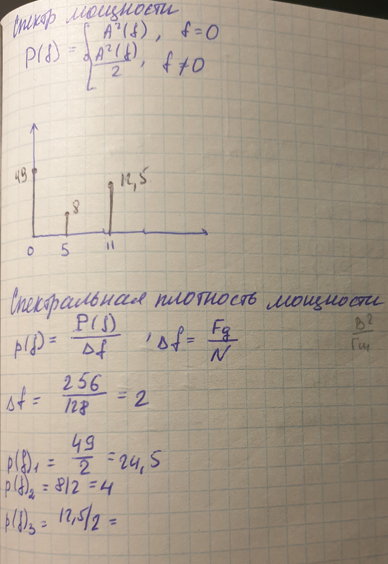 Спектр мощности
P(f) = { A²(f), f=0
A²(f)/2, f≠0
49
8
12,5
0 5 11
Спектральная плотность мощности
p(f) = P(f)/Δf , Δf = Fg/N В²/Гц
Δf = 256/128 = 2
p(f)₁ = 49/2 = 24,5
p(f)₂ = 8/2 = 4
p(f)₃ = 12,5/2 =